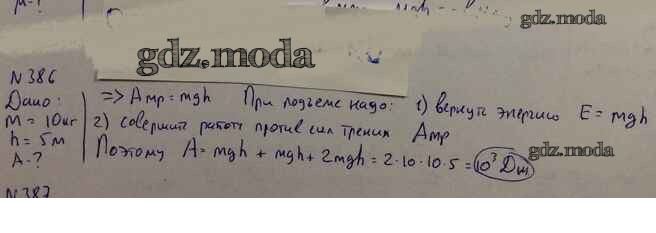 gdz.moda
gdz.moda
N 386
Дано:
m = 10 кг
h = 5 м
A - ?
=> Aтр = mgh При подъеме надо: 1) вернуть энергию E = mgh
2) совершить работу против сил трения Aтр
Поэтому A = mgh + mgh + 2mgh = 2·10·10·5 = 10³ Дж
gdz.moda
N 387